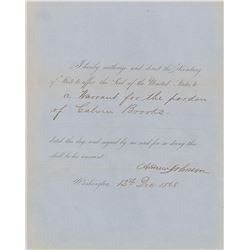 I hereby authorize and direct the Secretary
of State to affix the Seal of the United States to
a Warrant for the pardon
of Calvin Brooks.
dated this day, and signed by me and for so doing this
shall be his warrant.
Andrew Johnson
Washington, 12th Dec. 1868